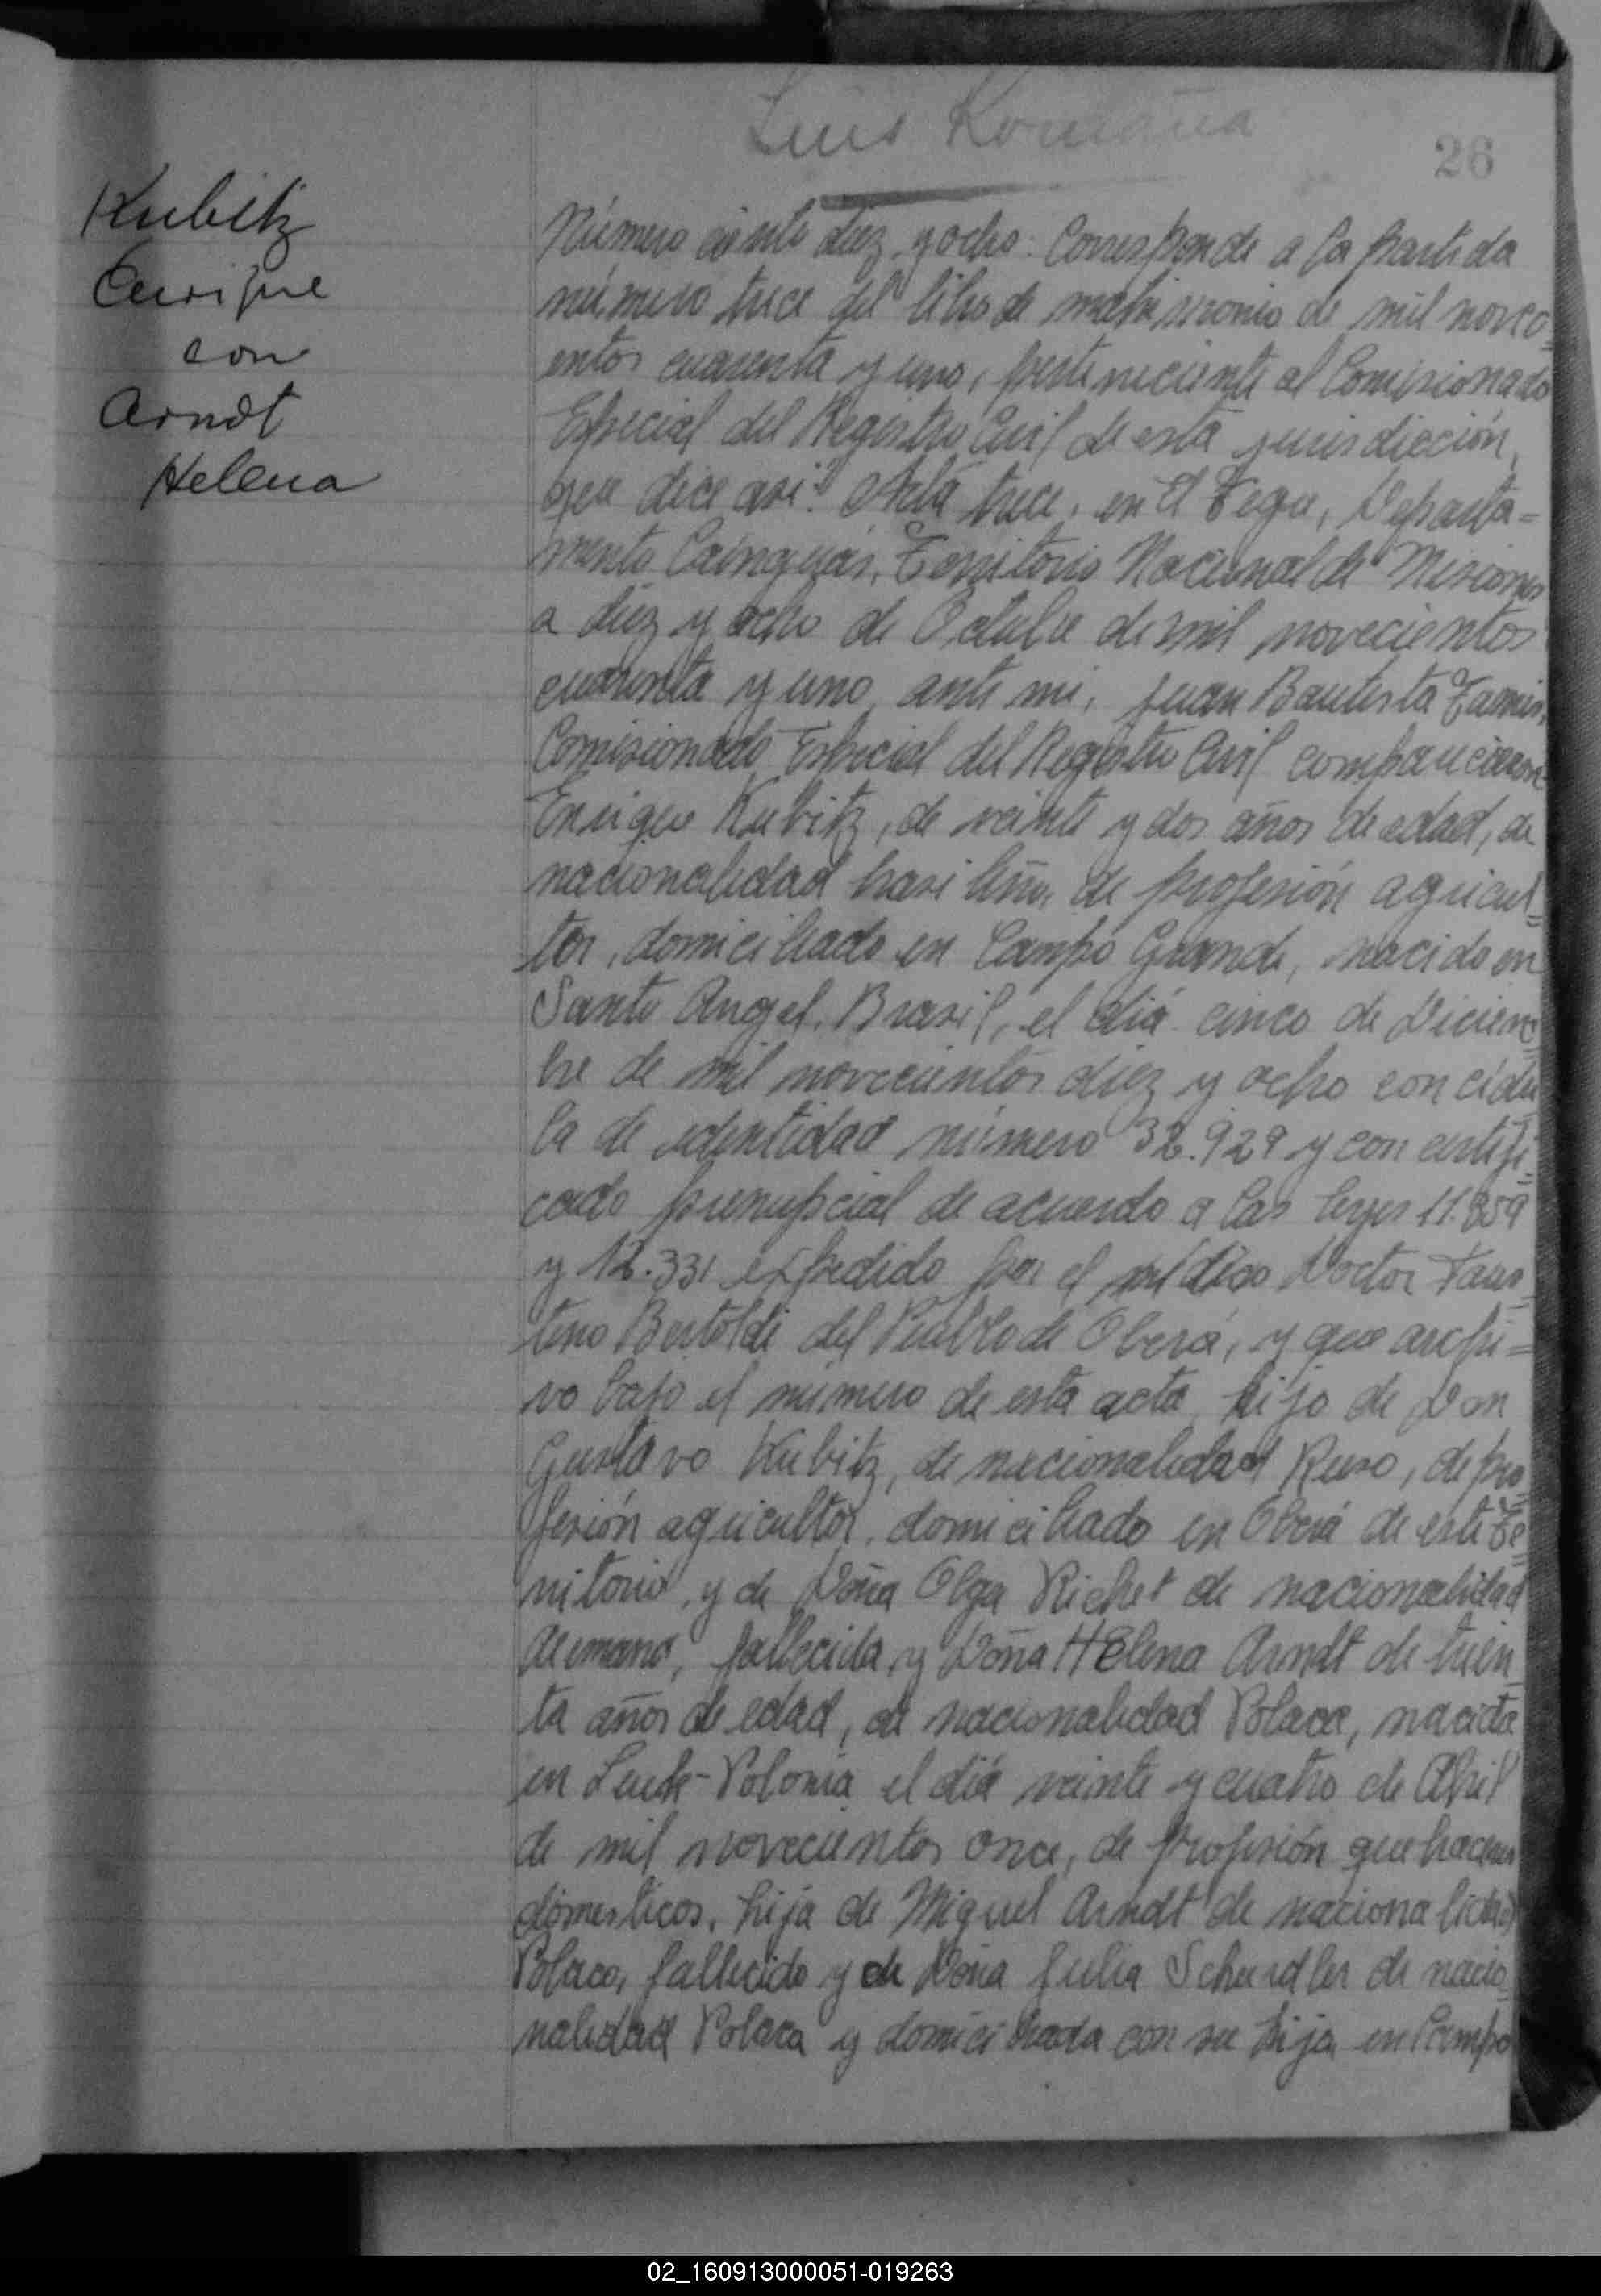 Luis Romaña
26
Kubitz
Enrique
con
Arndt
Helena
Número ciento diez y ocho: Corresponde a la partida
número trece del libro de matrimonio de mil noveci=
entos cuarenta y uno, perteneciente al Comisionado
Especial del Registro Civil de esta jurisdicción,
que dice asi: "Acta trece, en el Departa=
mento Cainguás, Territorio Nacional de Misiones
a diez y ocho de Octubre de mil novecientos
cuarenta y uno, ante mi, Juan Bautista
Comisionado Especial del Registro Civil comparecieron
Enrique Kubitz, de veinte y dos años de edad, de
nacionalidad brasileño, de profesión agricul=
tor, domiciliado en Campo Grande, nacido en
Santo Angel, Brasil, el día cinco de Diciem=
bre de mil novecientos diez y ocho con cédu=
la de identidad número 32.929 y con certifi=
cado prenupcial de acuerdo a las leyes 11.359
y 12.331 expedido por el médico Doctor Faus=
tino Bertoldi del Pueblo de Oberá, y que archi=
vo bajo el número de esta acta, hijo de Don
Gustavo Kubitz, de nacionalidad Ruso, de pro=
fesión agricultor, domiciliado en Oberá de este Te=
rritorio, y de Doña Olga Richet de nacionalidad
Alemana, fallecida, y Doña HElena Arndt de trein=
ta años de edad, de nacionalidad Polaca, nacida
en Luck-Polonia el día veinte y cuatro de Abril
de mil novecientos once, de profesión quehaceres
domesticos, hija de Miguel Arndt de nacionalidad
Polaco, fallecido y de Doña Julia Scheidler de nacio=
nalidad Polaca y domiciliada con su hija en Campo
02_160913000051-019263